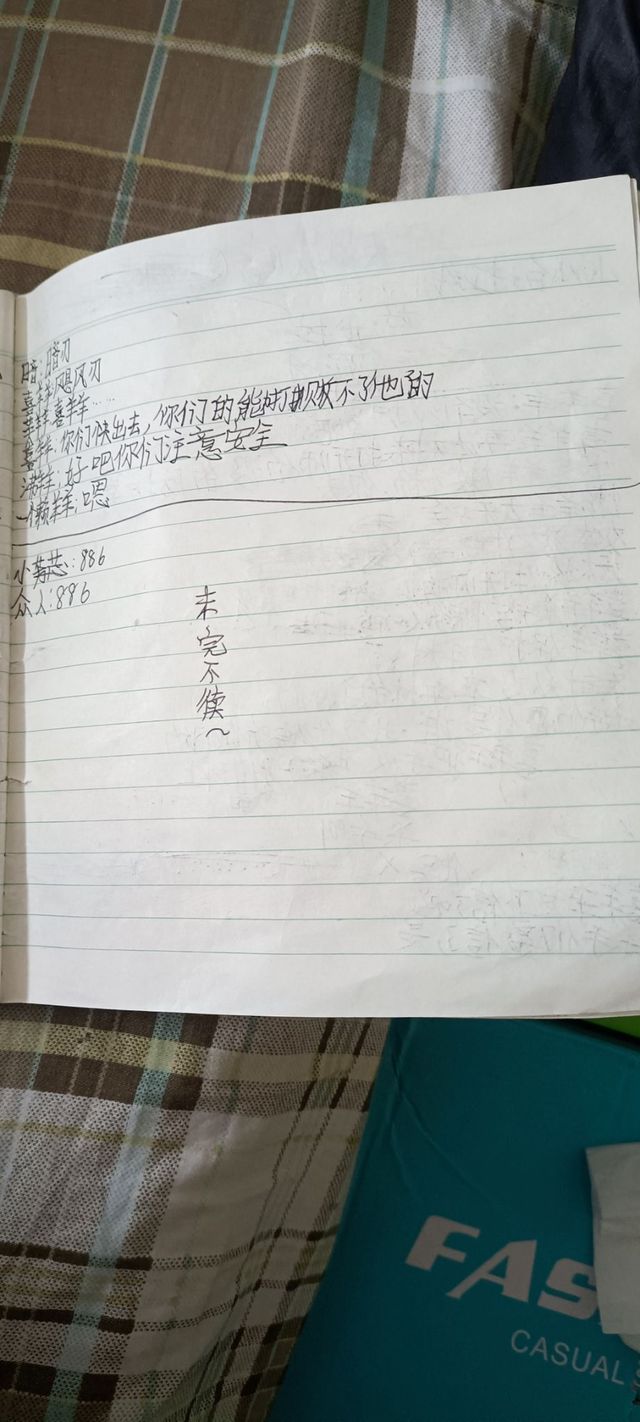 暗:暗刃
喜羊羊:飓风刃
美羊羊:喜羊羊……
喜羊羊:你们快出去,你们的能打败不了他的
沸羊羊:好吧你们注意安全
懒羊羊:嗯
小芳芯:886
众人:886
未完不续~
FAS
CASUAL S